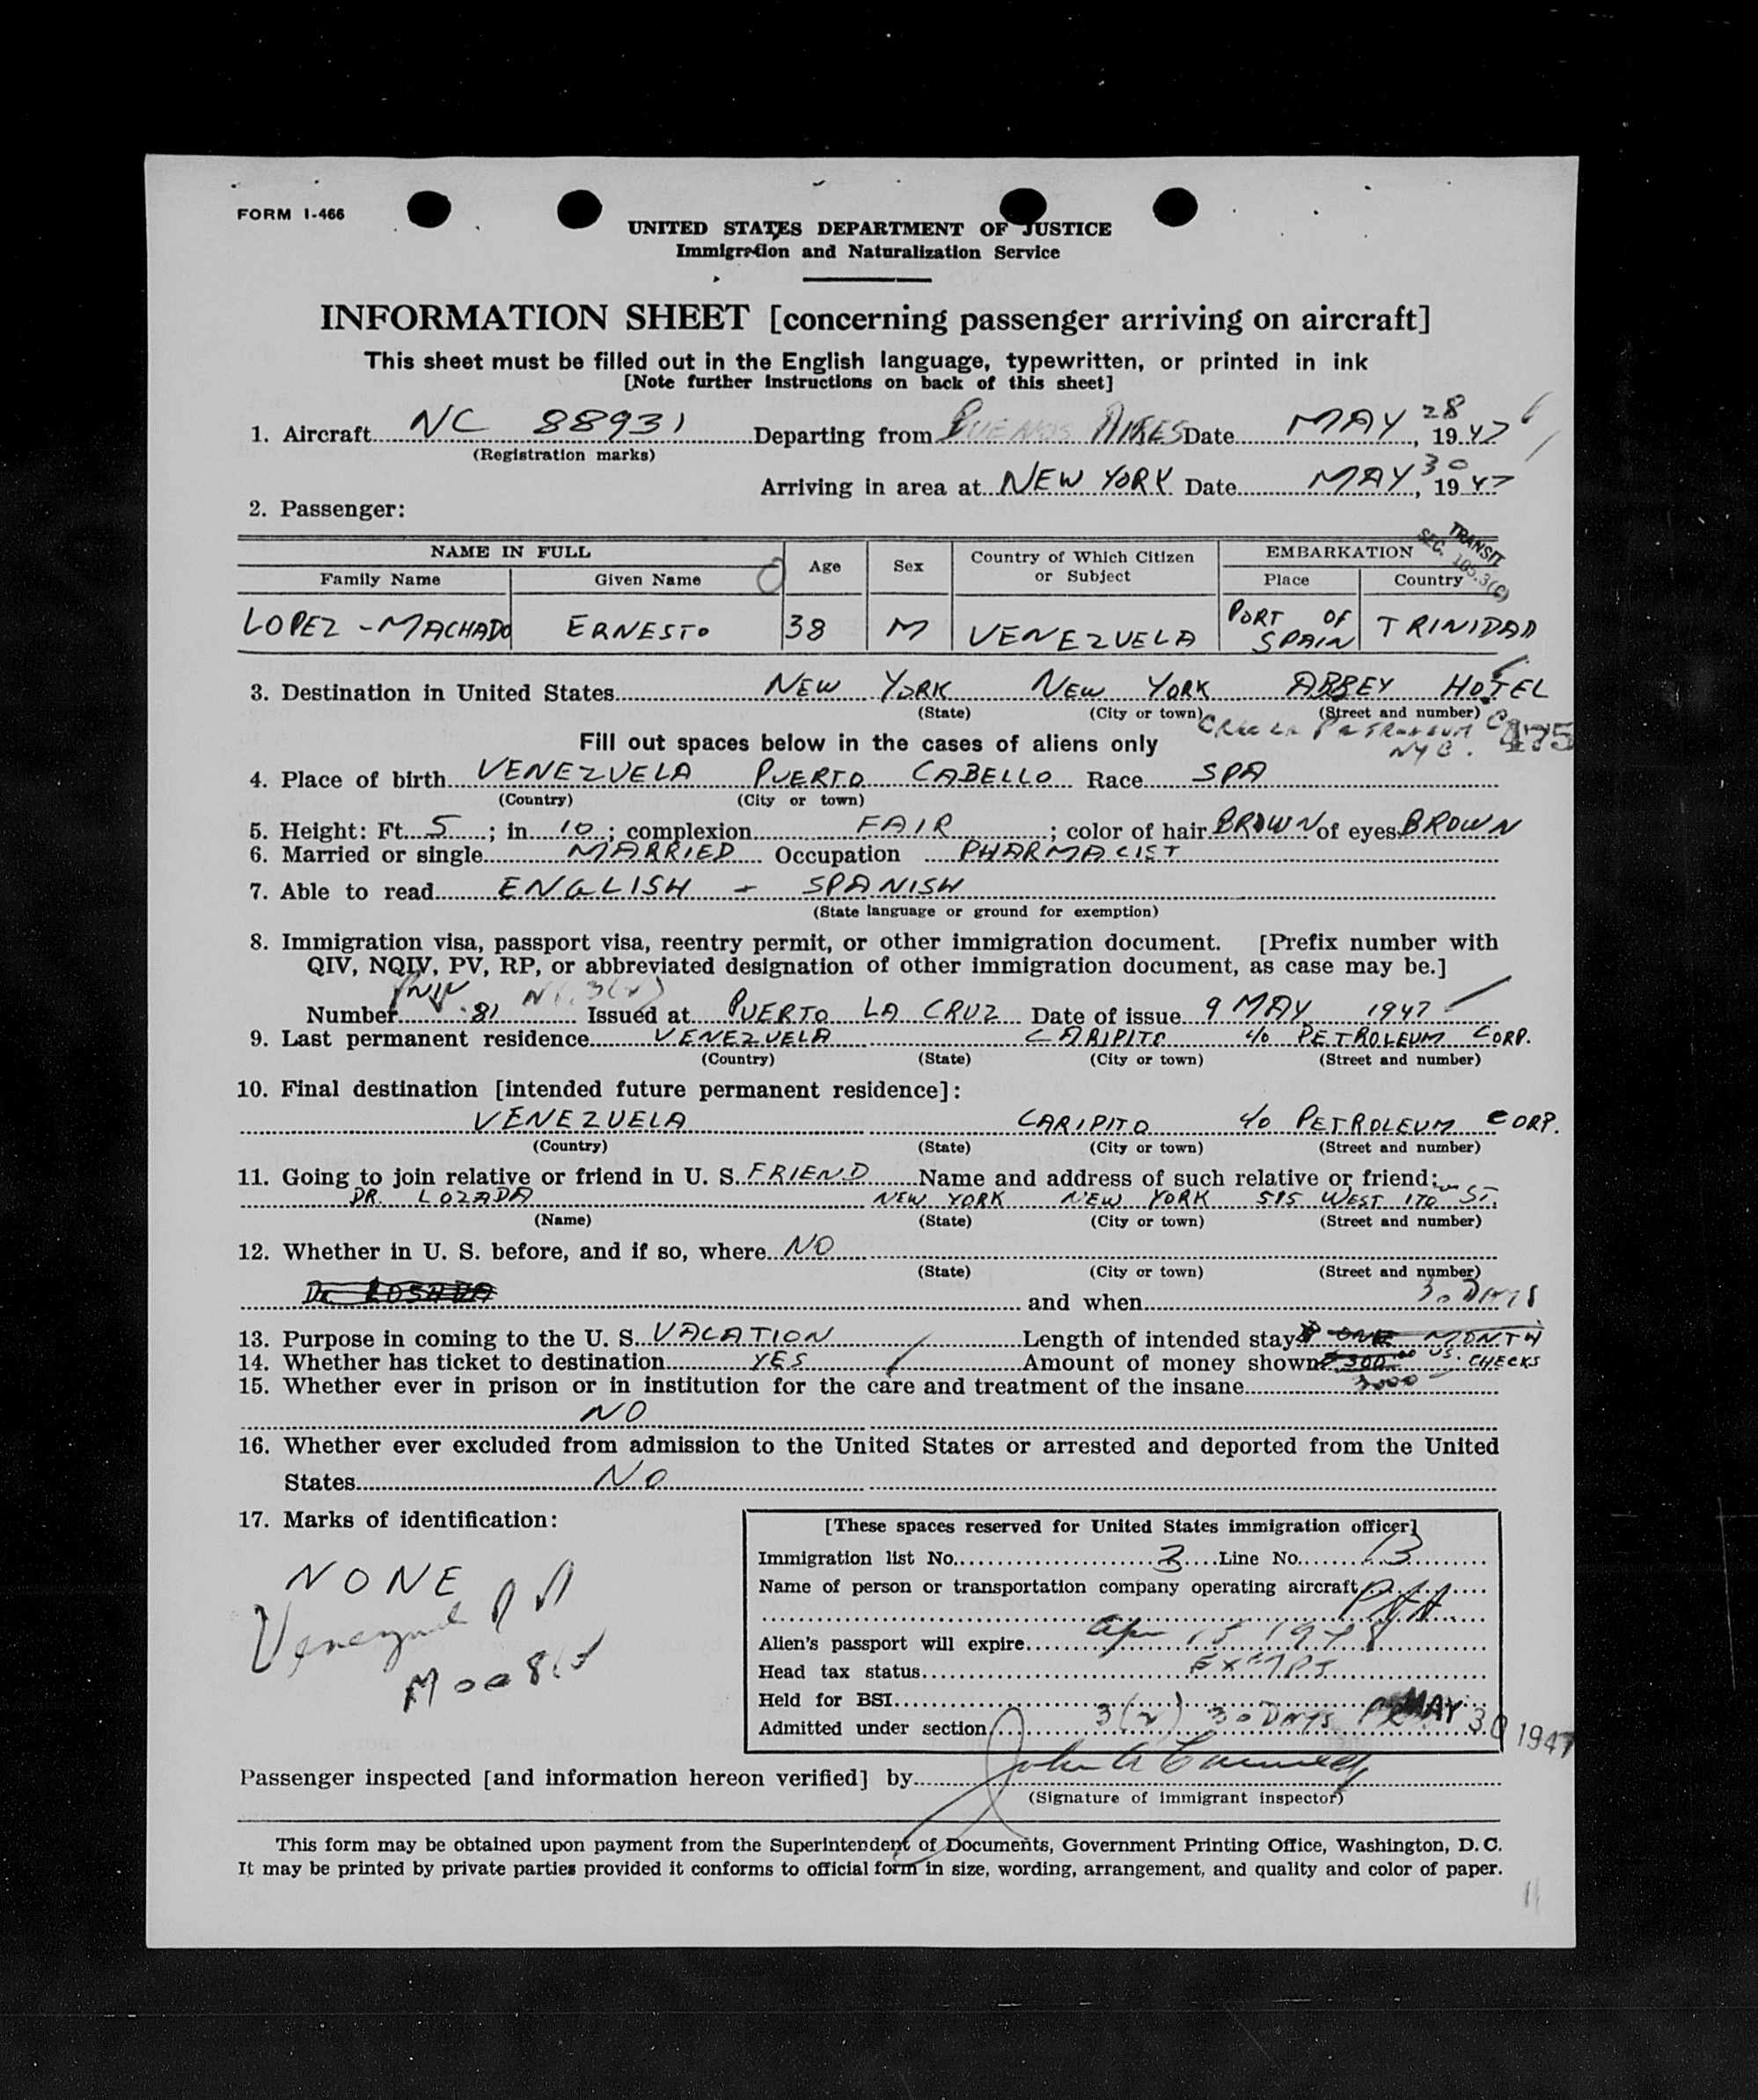 FORM I-466
UNITED STATES DEPARTMENT OF JUSTICE
Immigration and Naturalization Service
INFORMATION SHEET [concerning passenger arriving on aircraft]
This sheet must be filled out in the English language, typewritten, or printed in ink
[Note further instructions on back of this sheet]
1. Aircraft NC 88931 Departing from BUENOS AIRES Date MAY 28, 1947
(Registration marks)
Arriving in area at NEW YORK Date MAY 30, 1947
2. Passenger:
TRANSIT
SEC. 105.3(C)
NAME IN FULL Age Sex Country of Which Citizen or Subject EMBARKATION
Family Name Given Name Place Country
LOPEZ-MACHADO ERNESTO 38 M VENEZUELA PORT OF SPAIN TRINIDAD
3. Destination in United States NEW YORK NEW YORK ABBEY HOTEL
(State) (City or town) (Street and number)
NYC. 475
Fill out spaces below in the cases of aliens only
4. Place of birth VENEZUELA PUERTO CABELLO Race SPA
(Country) (City or town)
5. Height: Ft. 5; in 10; complexion FAIR; color of hair BROWN of eyes BROWN
6. Married or single MARRIED Occupation PHARMACIST
7. Able to read ENGLISH - SPANISH
(State language or ground for exemption)
8. Immigration visa, passport visa, reentry permit, or other immigration document. [Prefix number with
QIV, NQIV, PV, RP, or abbreviated designation of other immigration document, as case may be.]
Number 81 3(2) Issued at PUERTO LA CRUZ Date of issue 9 MAY 1947
9. Last permanent residence VENEZUELA CARIPITO c/o PETROLEUM CORP.
(Country) (State) (City or town) (Street and number)
10. Final destination [intended future permanent residence]:
VENEZUELA CARIPITO c/o PETROLEUM CORP.
(Country) (State) (City or town) (Street and number)
11. Going to join relative or friend in U. S. FRIEND Name and address of such relative or friend:
DR. LOZADA NEW YORK NEW YORK 515 WEST 170 ST.
(Name) (State) (City or town) (Street and number)
12. Whether in U. S. before, and if so, where NO
(State) (City or town) (Street and number)
DR LOSADA and when 30 DAYS
13. Purpose in coming to the U. S. VACATION Length of intended stay ONE MONTH
14. Whether has ticket to destination YES Amount of money shown $300.00 U.S. CHECKS
15. Whether ever in prison or in institution for the care and treatment of the insane 3000
NO
16. Whether ever excluded from admission to the United States or arrested and deported from the United
States NO
17. Marks of identification:
NONE
Venezuela PP
[These spaces reserved for United States immigration officer]
Immigration list No. 3 Line No. 13
Name of person or transportation company operating aircraft
PAA
Alien's passport will expire Apr 15 1948
Head tax status EXEMPT
Held for BSI
Admitted under section 3(2) 30 DAYS MAY 30 1947
Passenger inspected [and information hereon verified] by
(Signature of immigrant inspector)
This form may be obtained upon payment from the Superintendent of Documents, Government Printing Office, Washington, D. C.
It may be printed by private parties provided it conforms to official form in size, wording, arrangement, and quality and color of paper.